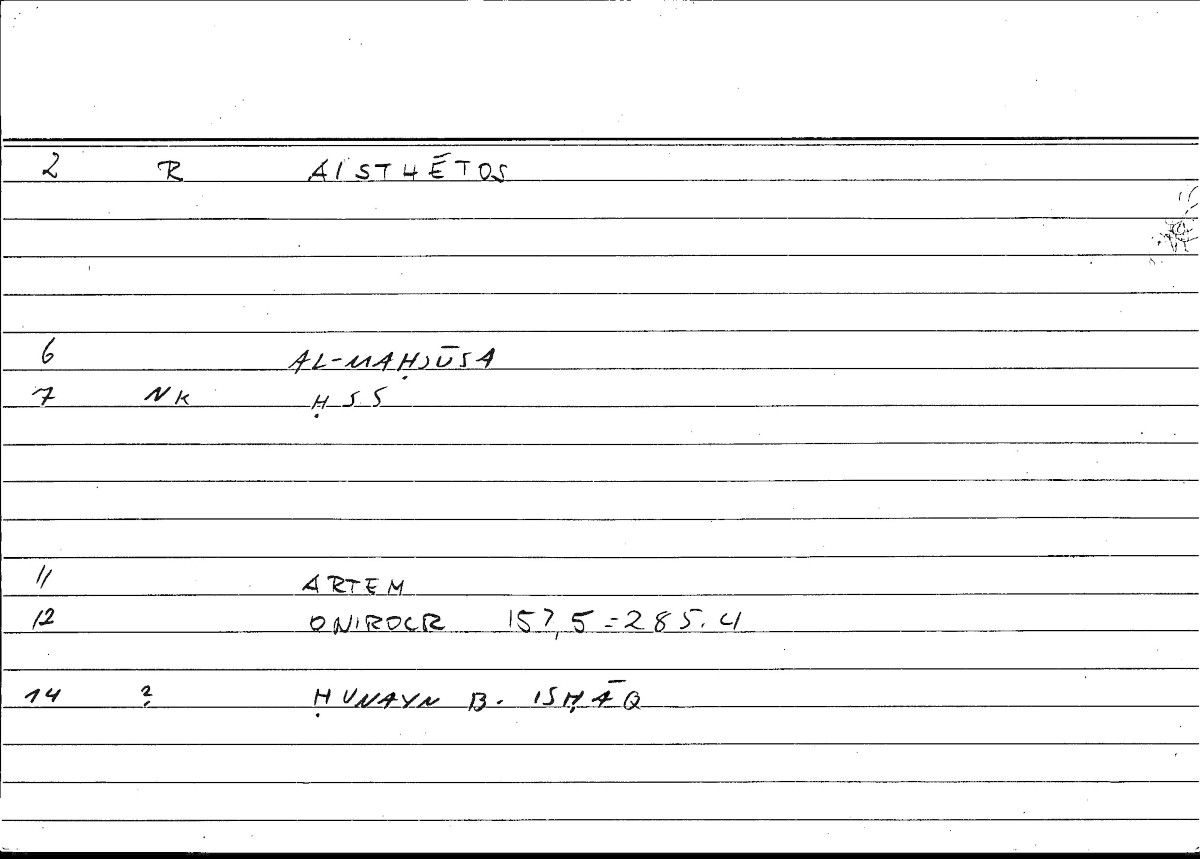 2 R AISTHĒTOS
6 AL-MAḤSŪSA
7 NK ḤSS
11 ARTEM
12 ONIROCR 157,5=285.4
14 ? ḤUNAYN B. ISḤĀQ